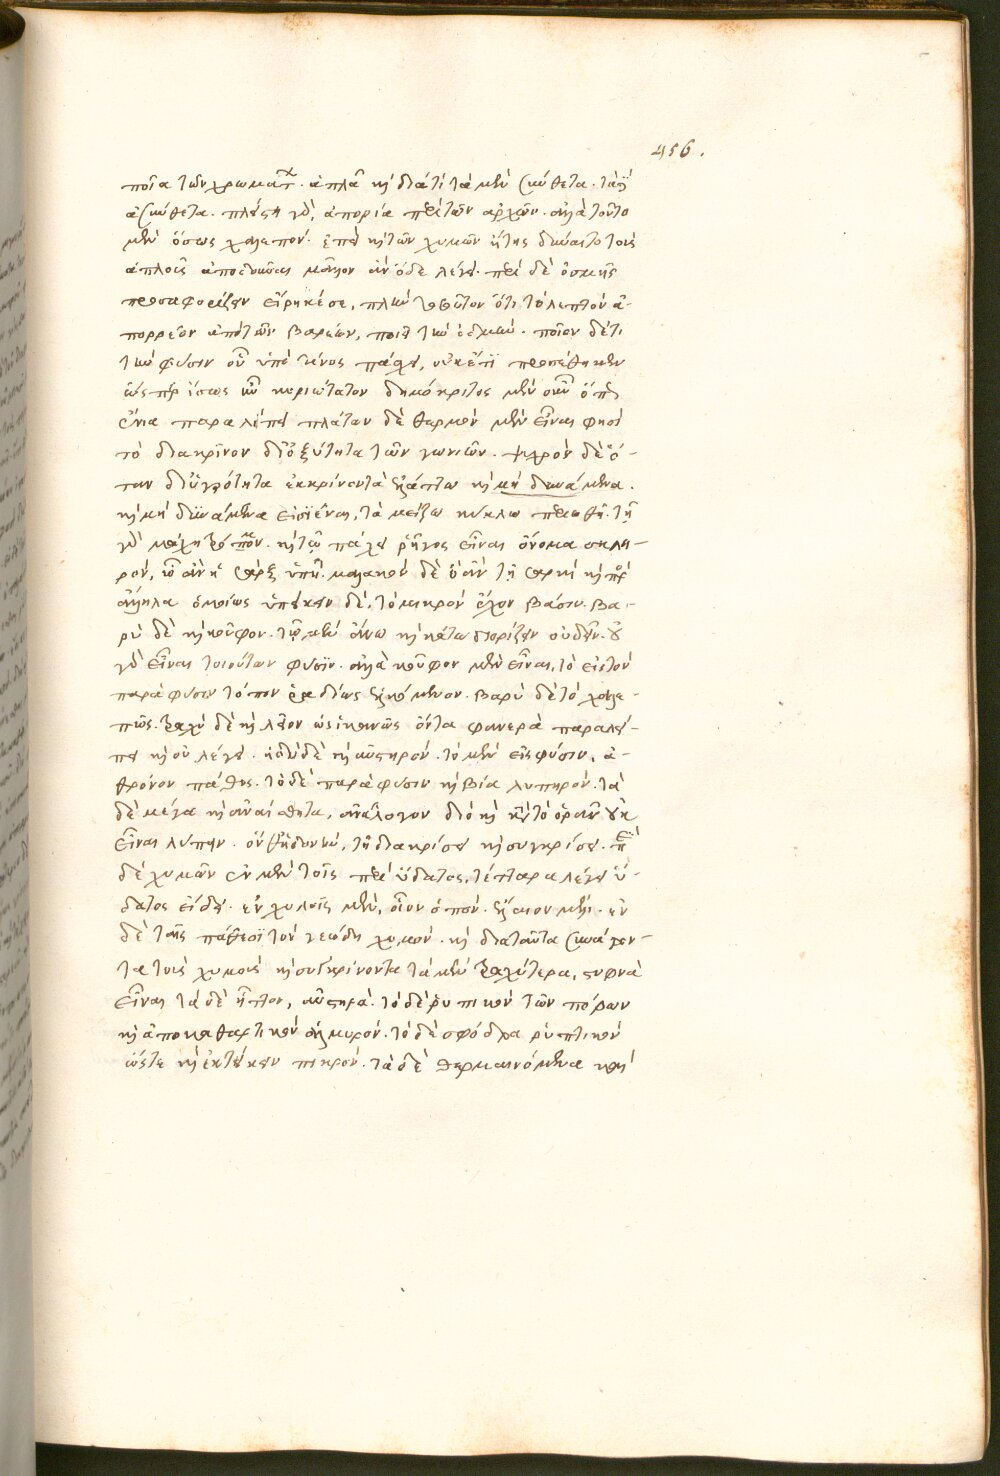 456.
ποῖα τῶν χρωμάτ. ἁπλᾶ κỳ διὰ τί τὰ μὲν σύνθετα. τὰ δ̓
ἀσύνθετα. πλείστη γὰρ, ἀπορία περὶ τῶν ἀρχῶν. ἀλλὰ τοῦτο
μὲν ἴσως χαλεπόν. ἐπεὶ καὶ τῶν χυμῶν εἴ τις δύναιτο τοὺς
ἁπλοῦς ἀποδοῦναι μᾶλλον ἂν ὅδε λέγει. περὶ δὲ ὀσμῆς
προσαφορίζειν εἴρηκέ σε, πλὴν τοσοῦτον ὅτι τὸ λεπτὸν ἀ-
πορρέον ἀπὸ τῶν βαρέων, ποιεῖ τὴν ὀδμήν. ποῖον δέ τι
τὴν φύσιν ὂν ὑπό τινος πάσχει, οὐκέτι προσέθηκεν
ὥσπερ ἴσως ἦν κυριώτατον δημόκριτος μὲν οὖν οὕτως
ἔνια παραλείπει πλάτων δὲ θερμὸν μὲν εἶναι φησὶ
τὸ διακρῖνον δι' ὀξύτητα τῶν γωνιῶν. ψυχρὸν δὲ ὅ-
ταν δι' ὑγρότητα ἐκκρίνοντα ἐλάττω καὶ μὴ δυνάμενα.
καὶ μὴ δυνάμενα εἰσϊέναι, τὰ μείζω κύκλω περιωθῆ. τῆ
γὰρ μάχη τρόμον. καὶ τῶ πάθει ῥῖγος εἶναι ὄνομα σκλη-
ρὸν, ὧ ἂν ἡ σὰρξ ὑπείκη. μαλακὸν δὲ ὃ ἂν τῆ σαρκὶ καὶ πρὸς
ἄλληλα ὁμοίως ὑπείκειν δὲ, τὸ μικρὸν ἔχον βάσιν. βα-
ρὺ δὲ καὶ κοῦφον. τῶ μὲν ἄνω καὶ κάτω διορίζειν οὐ δεῖν. οὐ
γὰρ εἶναι τοιούτων φύσϊν. ἀλλὰ κοῦφον μὲν εἶναι, τὸ εἰς τὸν
παρὰ φύσιν τόπον ῥαδίως ἑλκόμενον. βαρὺ δὲ τὸ χαλε-
πῶς. τραχὺ δὲ καὶ λεῖον ὡς ἱκανῶς ὄντα φανερὰ παραλεί-
πει καὶ οὐ λέγει. ἡδὺ δὲ καὶ αὐστηρόν. τὸ μὲν εἰς φύσιν, ἀ-
θρόνον πάθος. τὸ δὲ παρὰ φύσιν καὶ βία λυπηρόν. τὰ
δὲ μέσα καὶ ἀναίσθητα, ἀνάλογον διὸ καὶ κατὰ τὸ ὁρᾶν οὐκ
εἶναι λύπην. οὐδ' ἡδονὴν, τῆ διακρίσει καὶ συγκρίσει. περὶ
δὲ χυμῶν ἐν μὲν τοῖς περὶ ὕδατος, τέτταρα λέγει ὕ-
δατος εἴδη. ἐν χυλοῖς μὲν, οἶνον ὀπὸν. ἔλαιον μέλι. ἐν
δὲ τοῖς πάθεσϊ τὸν γεώδη χυμόν. καὶ διὰ ταῦτα συνάγον-
τα τοὺς χυμοὺς καὶ συγκρίνοντα τὰ μὲν τραχύτερα, στυφνὰ
εἶναι τὰ δὲ ἧττον, αὐστηρά. τὸ δὲ ῥυπτικὸν τῶν πόρων
καὶ ἀποκαθαρτικὸν ἁλμυρόν. τὸ δὲ σφόδρα ῥυπτικὸν
ὥστε καὶ ἐκτήκειν πικρόν. τὰ δὲ θερμαινόμενα καὶ